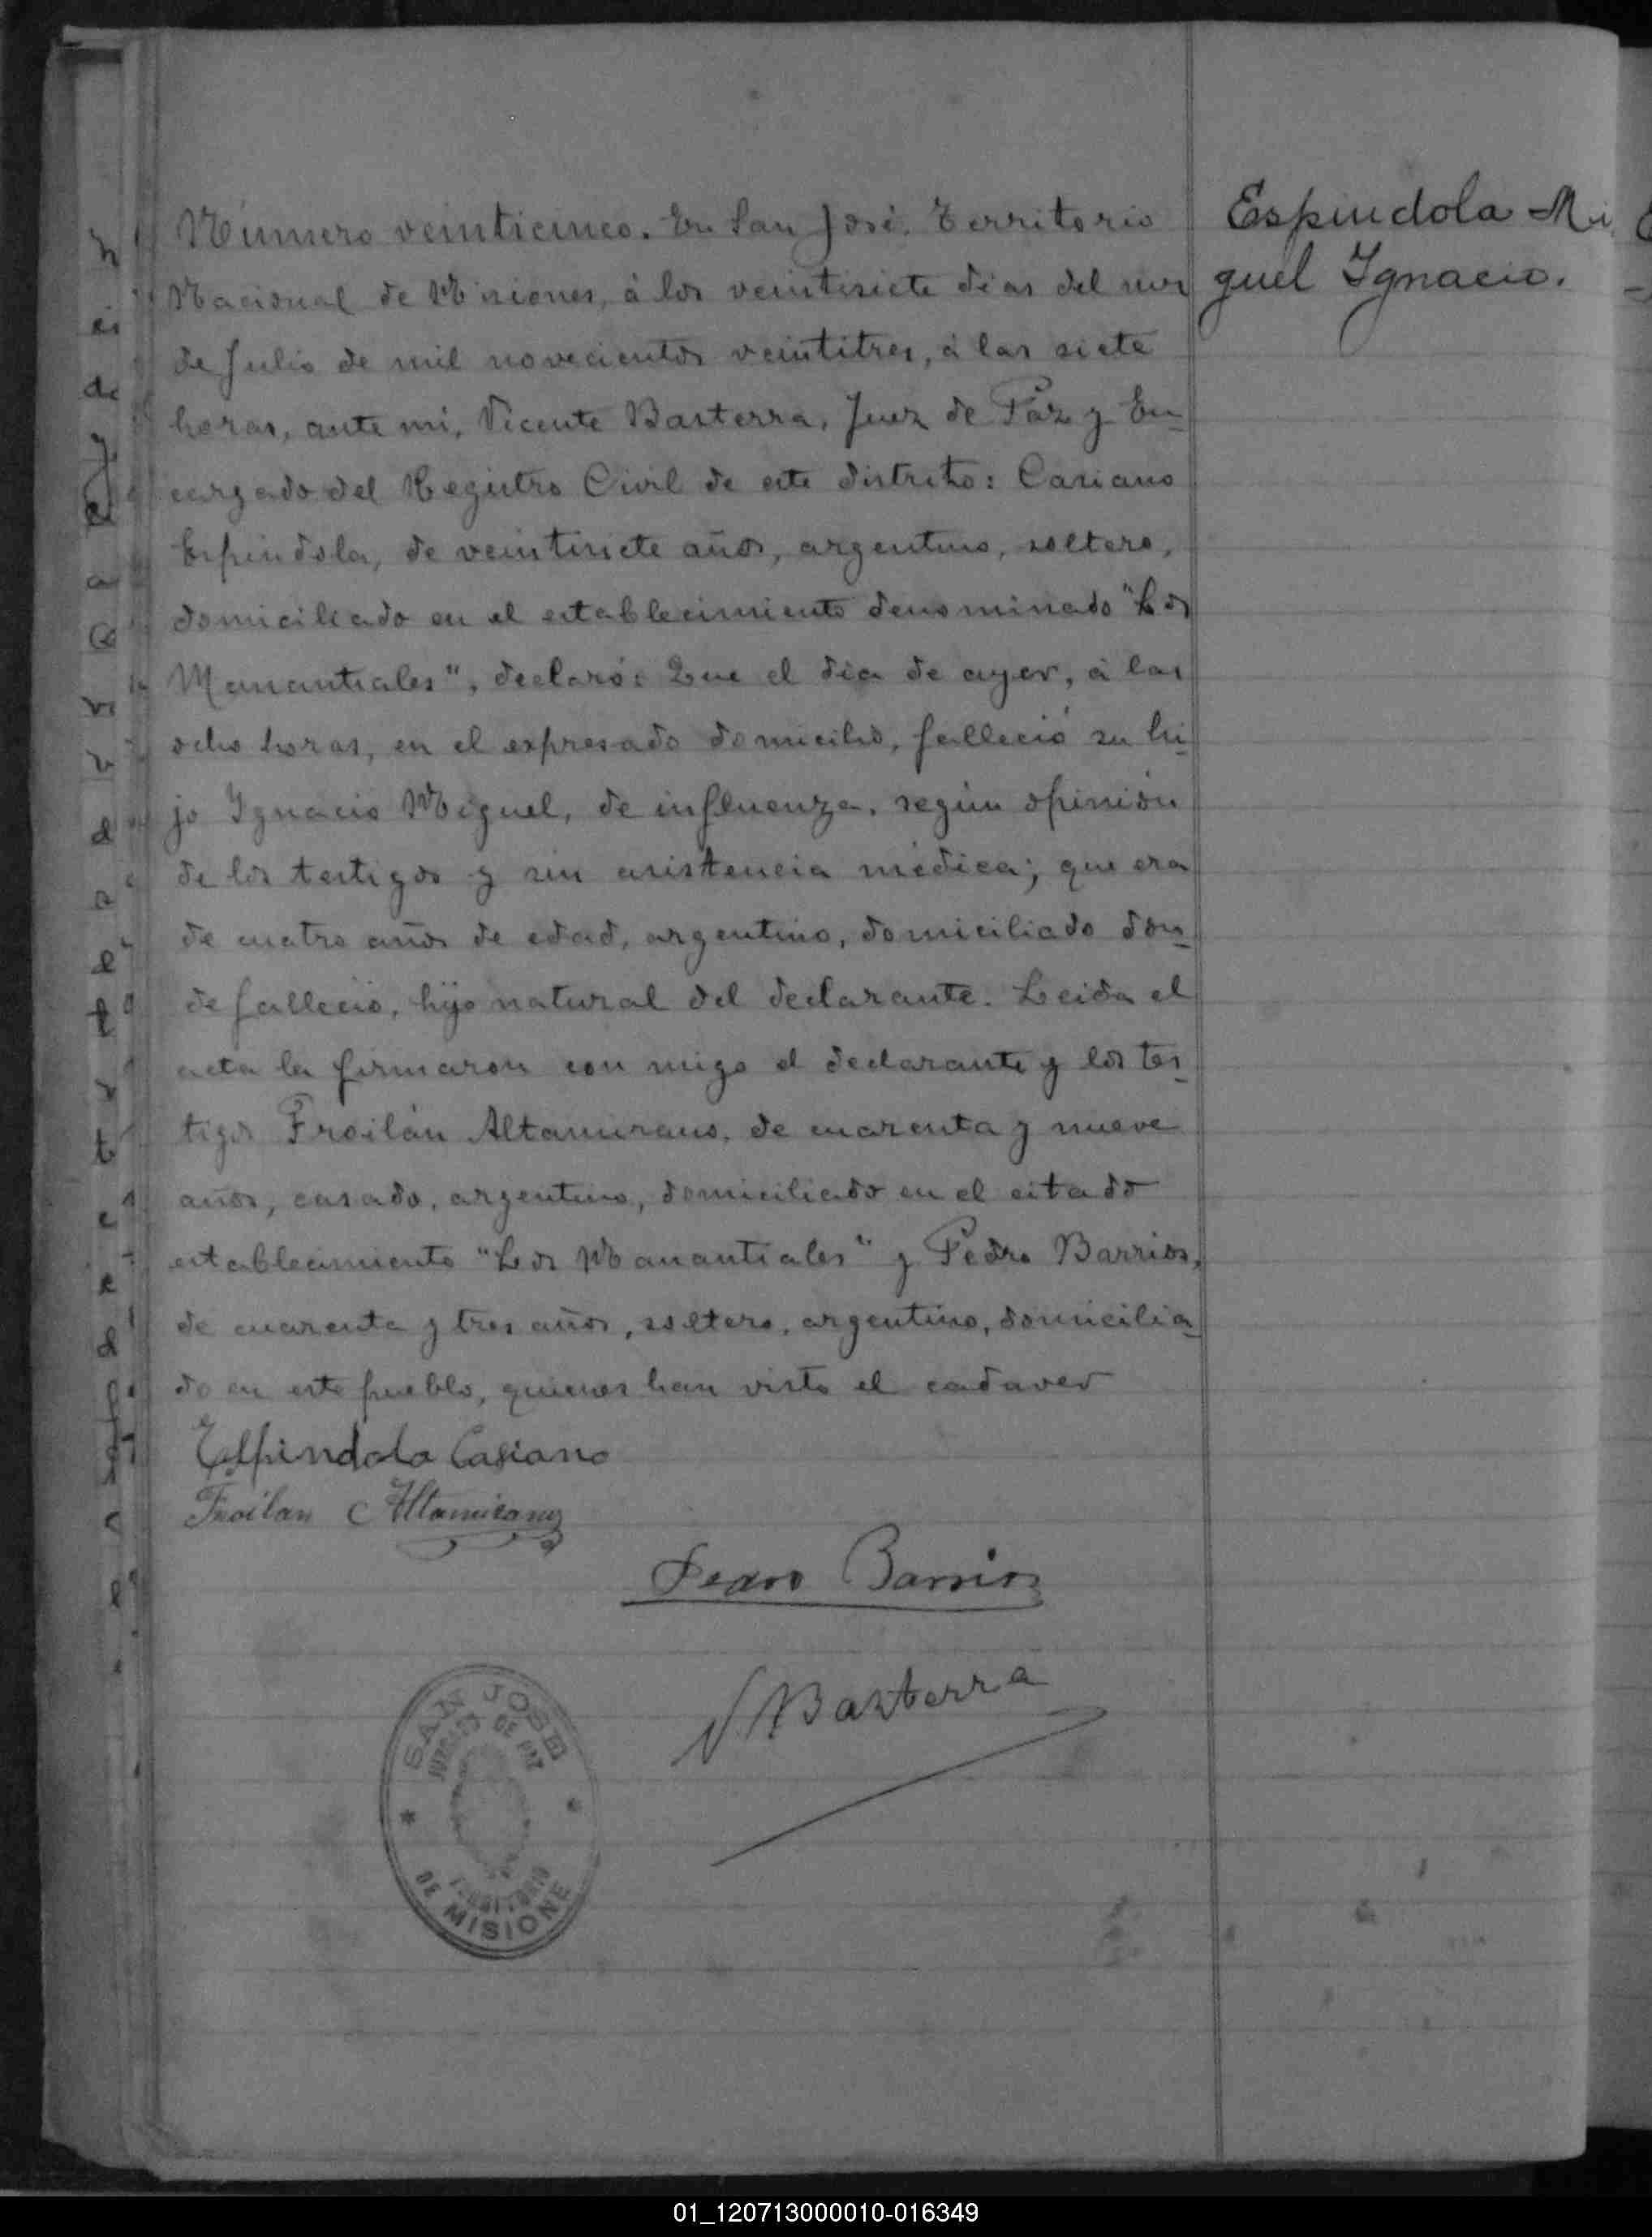 Número veinticinco. En San José, Territorio
Nacional de Misiones, á los veintisiete dias del mes
de Julio de mil novecientos veintitres, á las siete
horas, ante mi, Vicente Basterra, Juez de Paz y En-
cargado del Registro Civil de este distrito: Casiano
Espindola, de veintisiete años, argentino, soltero,
domiciliado en el establecimiento denominado "Los
Manantiales", declaró: Que el dia de ayer, á las
ocho horas, en el expresado domicilio, falleció su hi-
jo Ignacio Miguel, de influenza, según opinión
de los testigos y sin asistencia médica; que era
de cuatro años de edad, argentino, domiciliado don-
de falleció, hijo natural del declarante. Leida el
acta la firmaron con migo el declarante y los tes-
tigos Froilán Altamirano, de cuarenta y nueve
años, casado, argentino, domiciliado en el citado
establecimiento "Los Manantiales" y Pedro Barrios,
de cuarenta y tres años, soltero, argentino, domicilia-
do en este pueblo, quienes han visto el cadaver
Espindola Casiano
Froilan Altamirano
Pedro Barrios
V Basterra
SAN JOSE
JUZGADO DE PAZ
TERRITORIO
DE MISIONE
Espindola Mi
guel Ignacio.
01_120713000010-016349